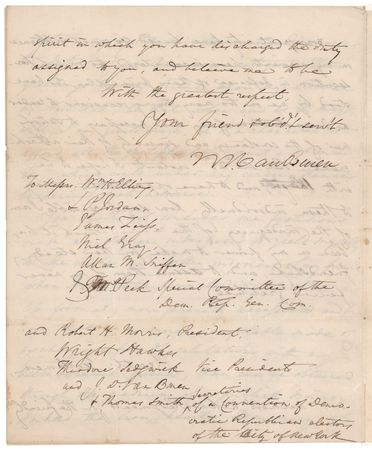 spirit in which you have discharged the duty
assigned to you, and believe me to be
With the greatest respect.
Your friend & ob'd't serv't
To Messrs. Wm H. Elting
& C. Jordan
James
Nich Gray
Allan M. Sniffen
Peck Special Committee of the
Dem. Rep. Gen. Com.
and Robert H. Morris, President.
Wright Hawkes
Theodore Sedgwick Vice Presidents
and J. Van Buren
& Thomas Smith Secretaries of a Convention of Demo-
cratic Republican electors
of the City of New York